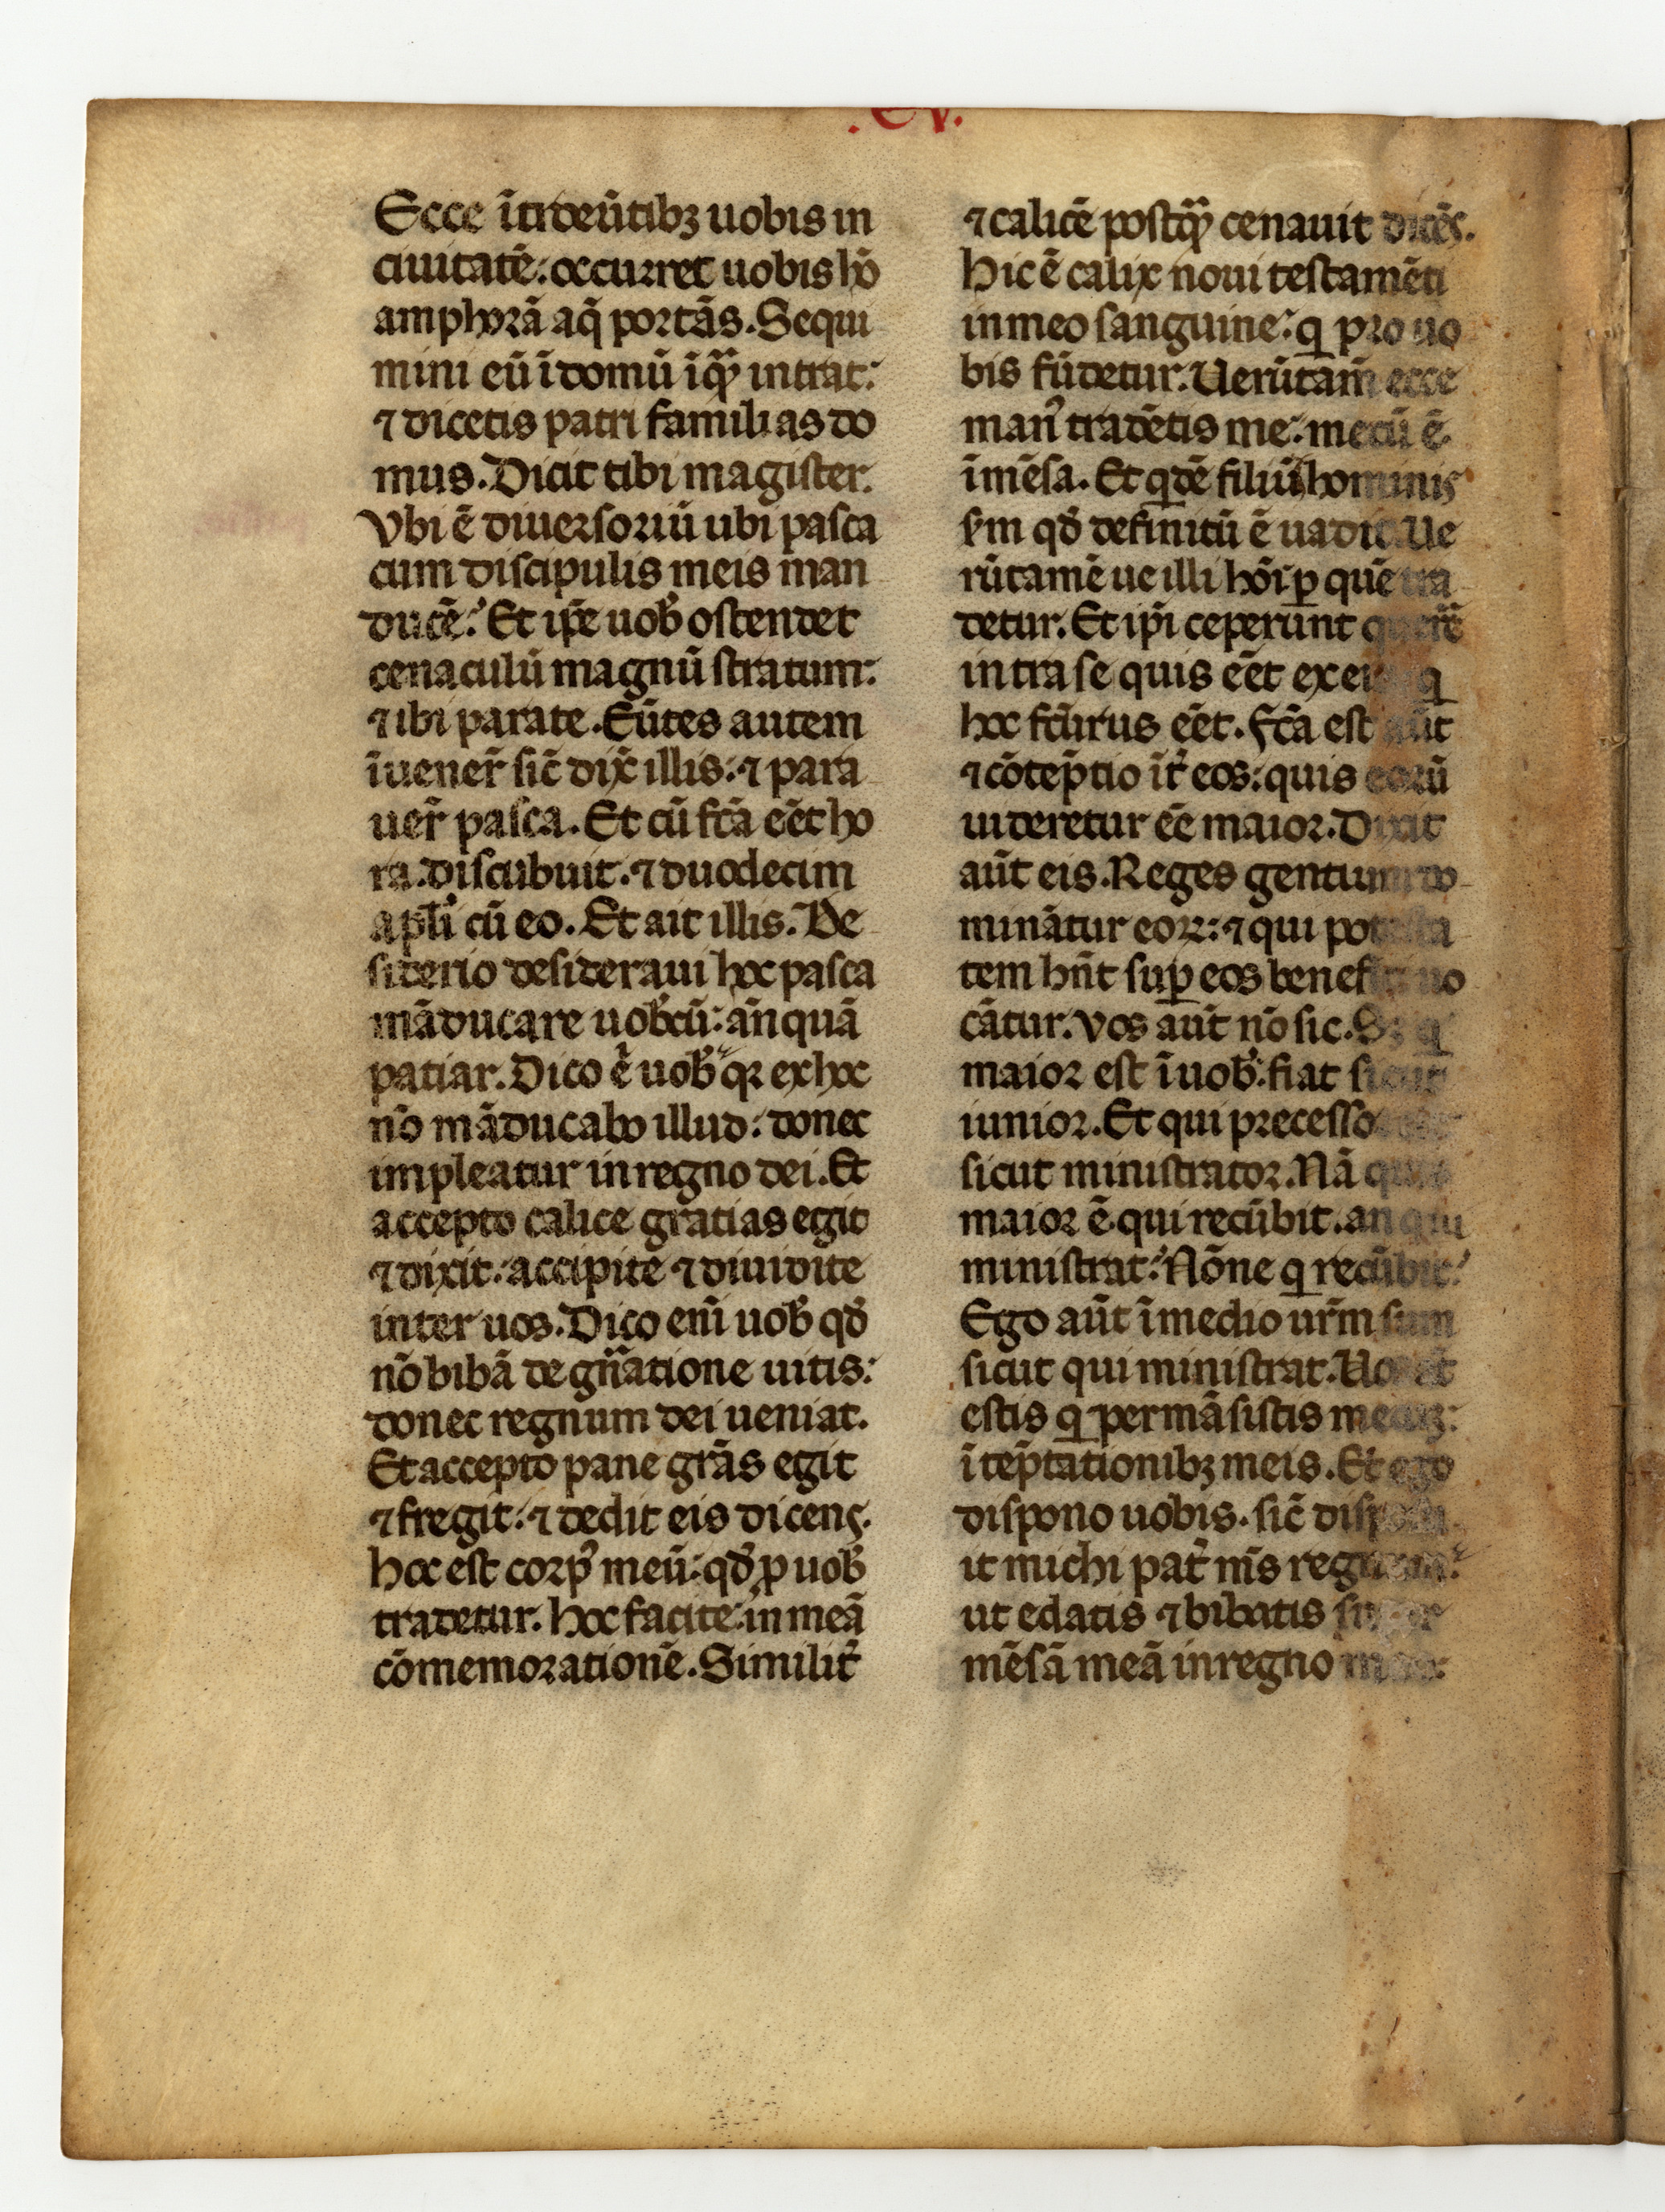 .CV.
Ecce ītroeūtibꝫ uobis in
ciuitatē: occurret uobis hō
amphorā aq̄ portās. Sequi
mini eū ī domū ī qͣ̄ intrat:
⁊ dicetis patri familias do
mus. Dicit tibi magister.
Vbi ē diuersoriū ubi pasca
cum discipulis meis man
ducē: Et ip̄e uob̓ ostendet
cenaculū magnū stratum:
⁊ ibi parate. Eūtes autem
īuener̄ sic̄ dix̄ illis: ⁊ para
uer̄ pasca. Et cū fc̄a eēt ho
ra. discubuit. ⁊ duodecim
apl̓i cū eo. Et ait illis. De
siderio desideraui hoc pasca
māducare uob̓cū: an̄quā
patiar. Dico e̓ uob̓ qꝛ ex hoc
nō māducabo illud: donec
impleatur in regno dei. Et
accepto calice gratias egit
⁊ dixit: accipite ⁊ diuidite
inter uos. Dico eni̅ uob̓ qd̓
nō bibā de gn̄atione uitis:
donec regnum dei ueniat.
Et accepto pane gr̄as egit
⁊ fregit: ⁊ dedit eis dicens.
hoc est corpꝰ meū: qd̓ ꝓ uob̓
tradetur. hoc facite: in meā
cōmemorationē. Similit̓
⁊ calicē postqͣ̄ cenauit dicēs.
hic ē calix noui testamēti
in meo sanguine: q pro uo
bis fūdetur. Uerūtam̄ ecce
manꝰ tradētis me: mecū ē
ī mēsa. Et qdē filiū hominis
ẜm qd̓ definitū ē uadit. Ue
rūtamē ue illi hōi ꝑ quē tra
detur. Et ip̄i ceperunt q̄rere
intra se quis eēt ex eis q
hoc fc̄urus eēt. Fc̄a est aūt
⁊ cōtep̄tio īt̓ eos: quis eorū
uideretur eē̄ maior. Dixit
aūt eis. Reges gentium do
minātur eoꝝ: ⁊ qui potesta
tem hn̄t suꝑ eos benefici uo
cātur. Vos aūt nō sic. Sꝫ q
maior est ī uob̓: fiat sicut
iunior. Et qui precessor
sicut ministrator. Nā quis
maior ē qui recūbit. an qui
ministrat: Nōne q recūbit:
Ego aūt ī medio ur̄m sum
sicut qui ministrat. Uos
estis q permāsistis mecū:
ī tep̄tationibꝫ meis. Et ego
dispono uobis. sic̄ dispo
it michi pat̓ m̄s regnum:
ut edatis ⁊ bibatis super
mēsā meā in regno meo: